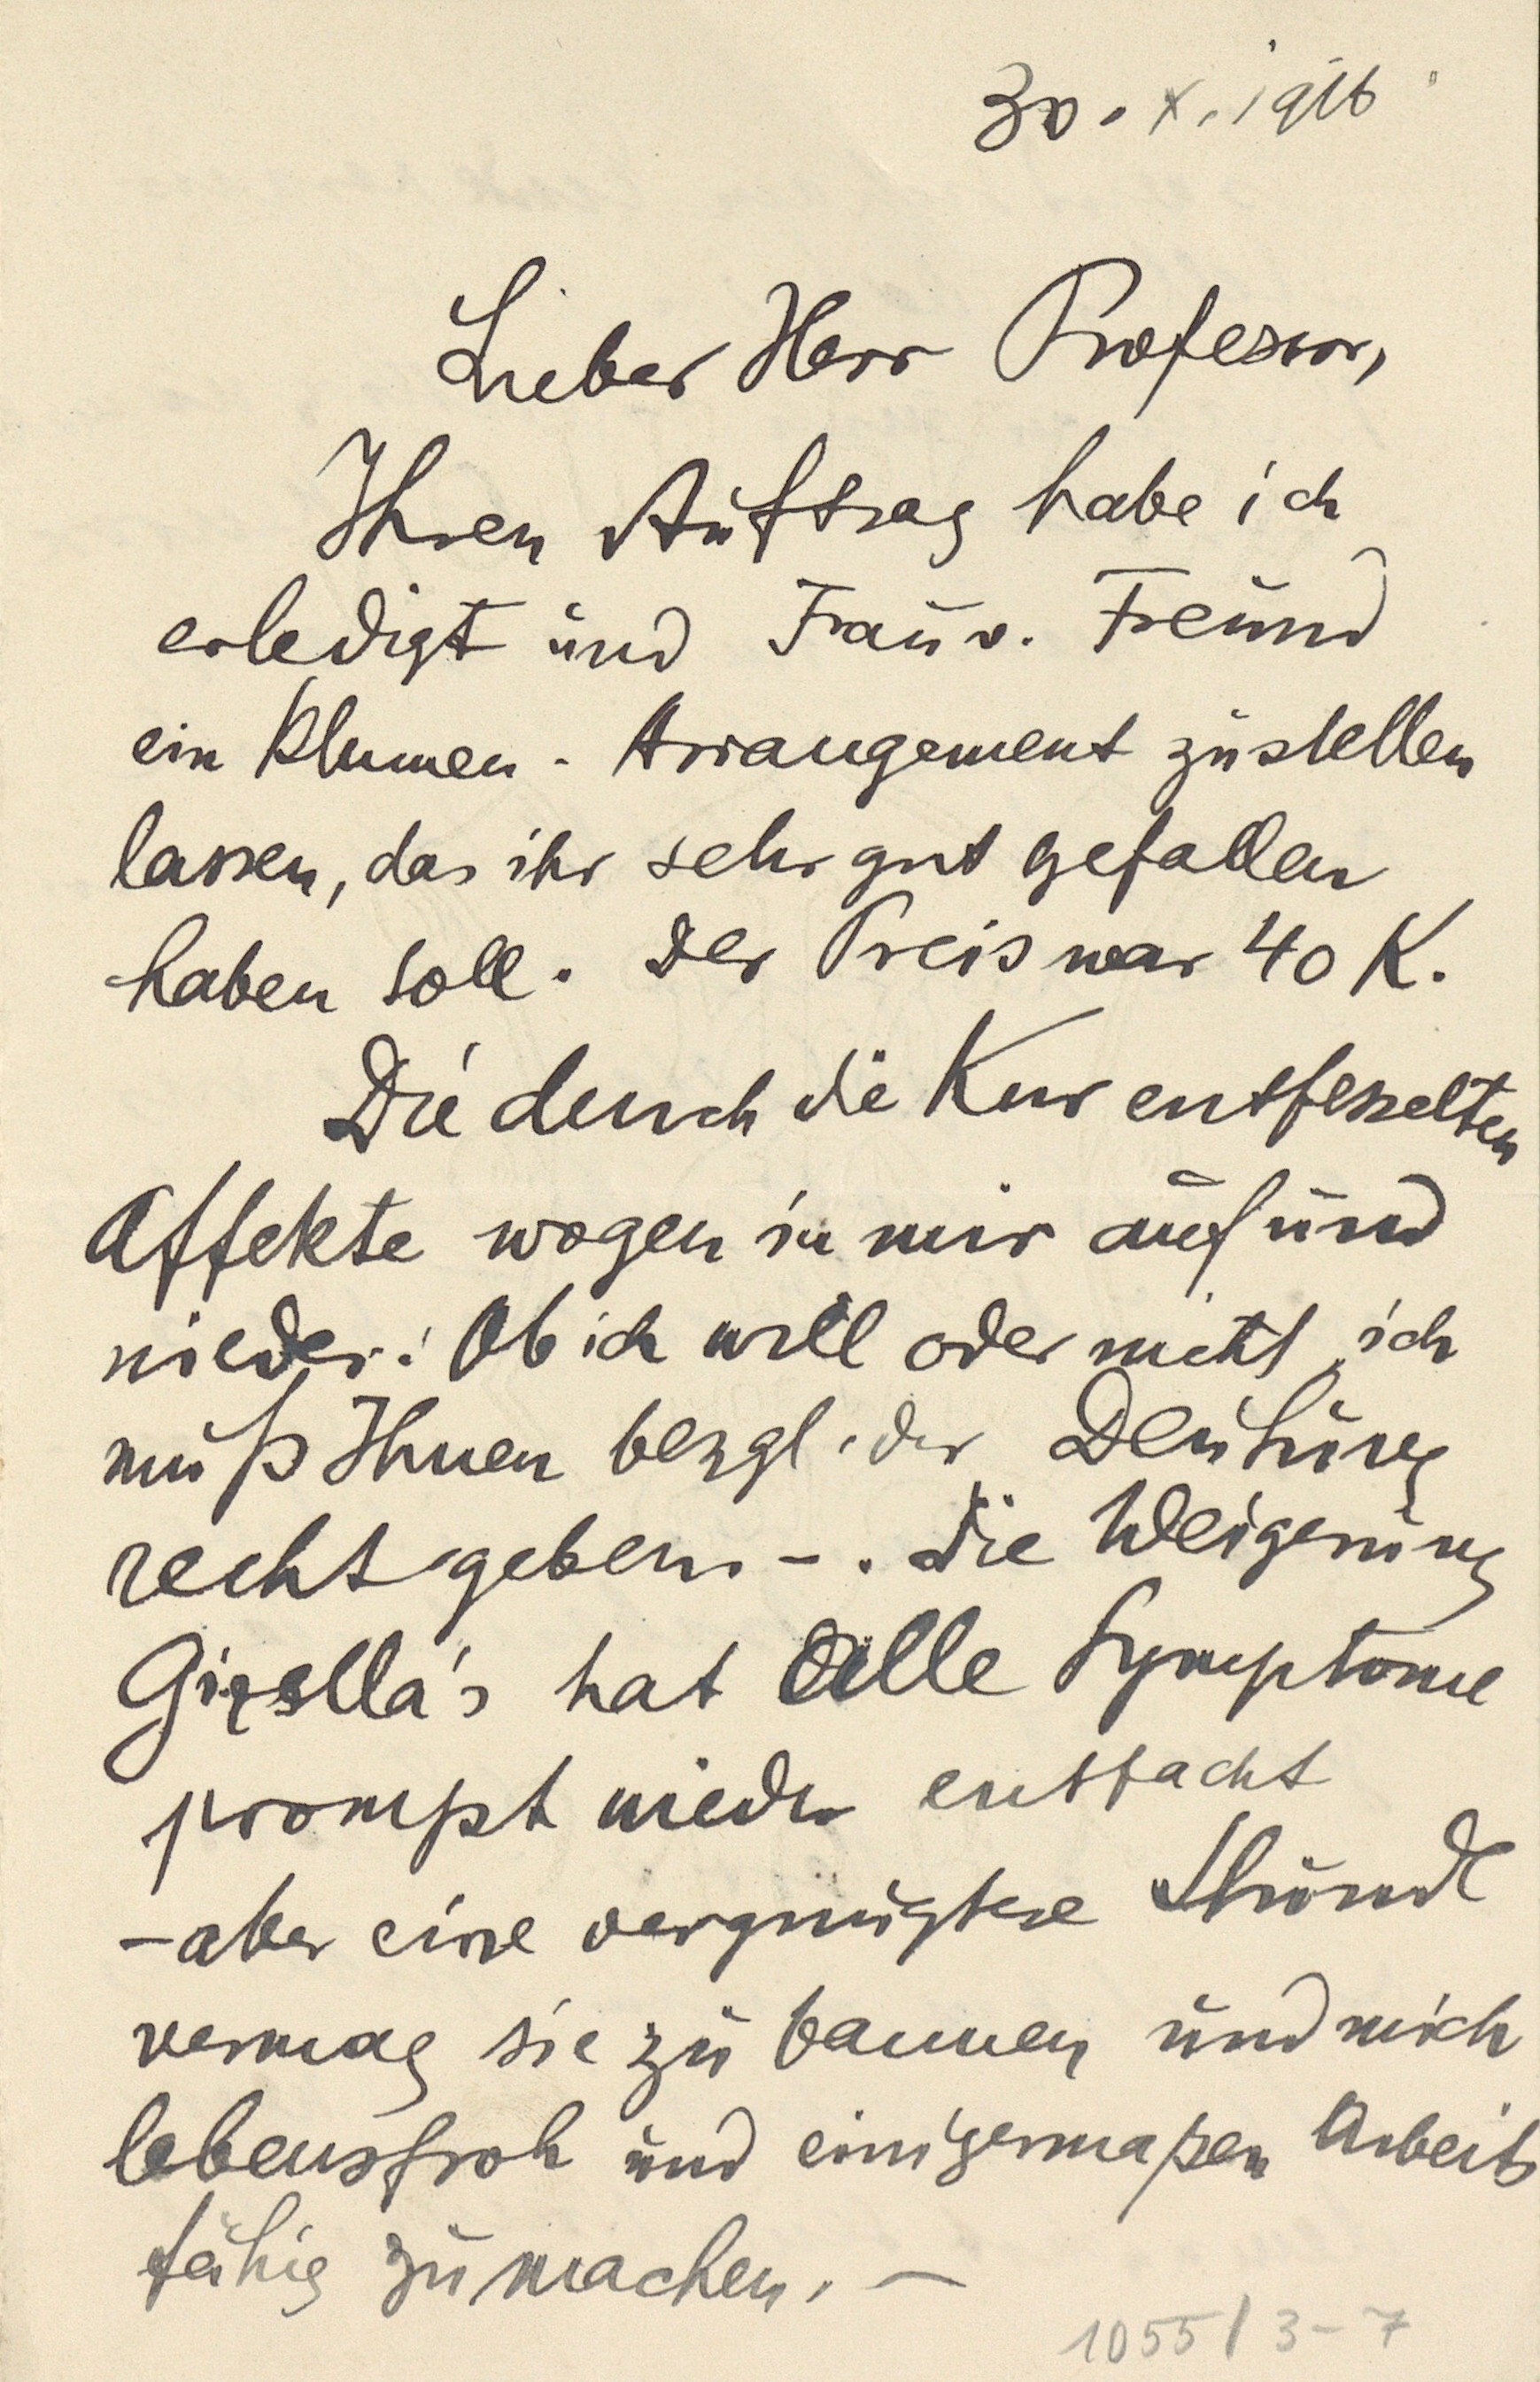 30. X. 1916
Lieber Herr Professor,
Ihren Auftrag habe ich
erledigt und Frau v. Freund
ein Blumen-Arrangement zustellen
lassen, das ihr sehr gut gefallen
haben soll. Der Preis war 40 K.
Die durch die Kur entfesselten
Affekte wogen in mir auf und
nieder: Ob ich will oder nicht, ich
muß Ihnen bezgl. der Deutung
recht geben –. Die Weigerung
Gizella's hat alle Symptome
prompt wieder entfacht
– aber eine vergnügtere Stunde
vermag sie zu bannen und mich
lebensfroh und einigermaßen Arbeits
fähig zu machen. –
1055/3-7